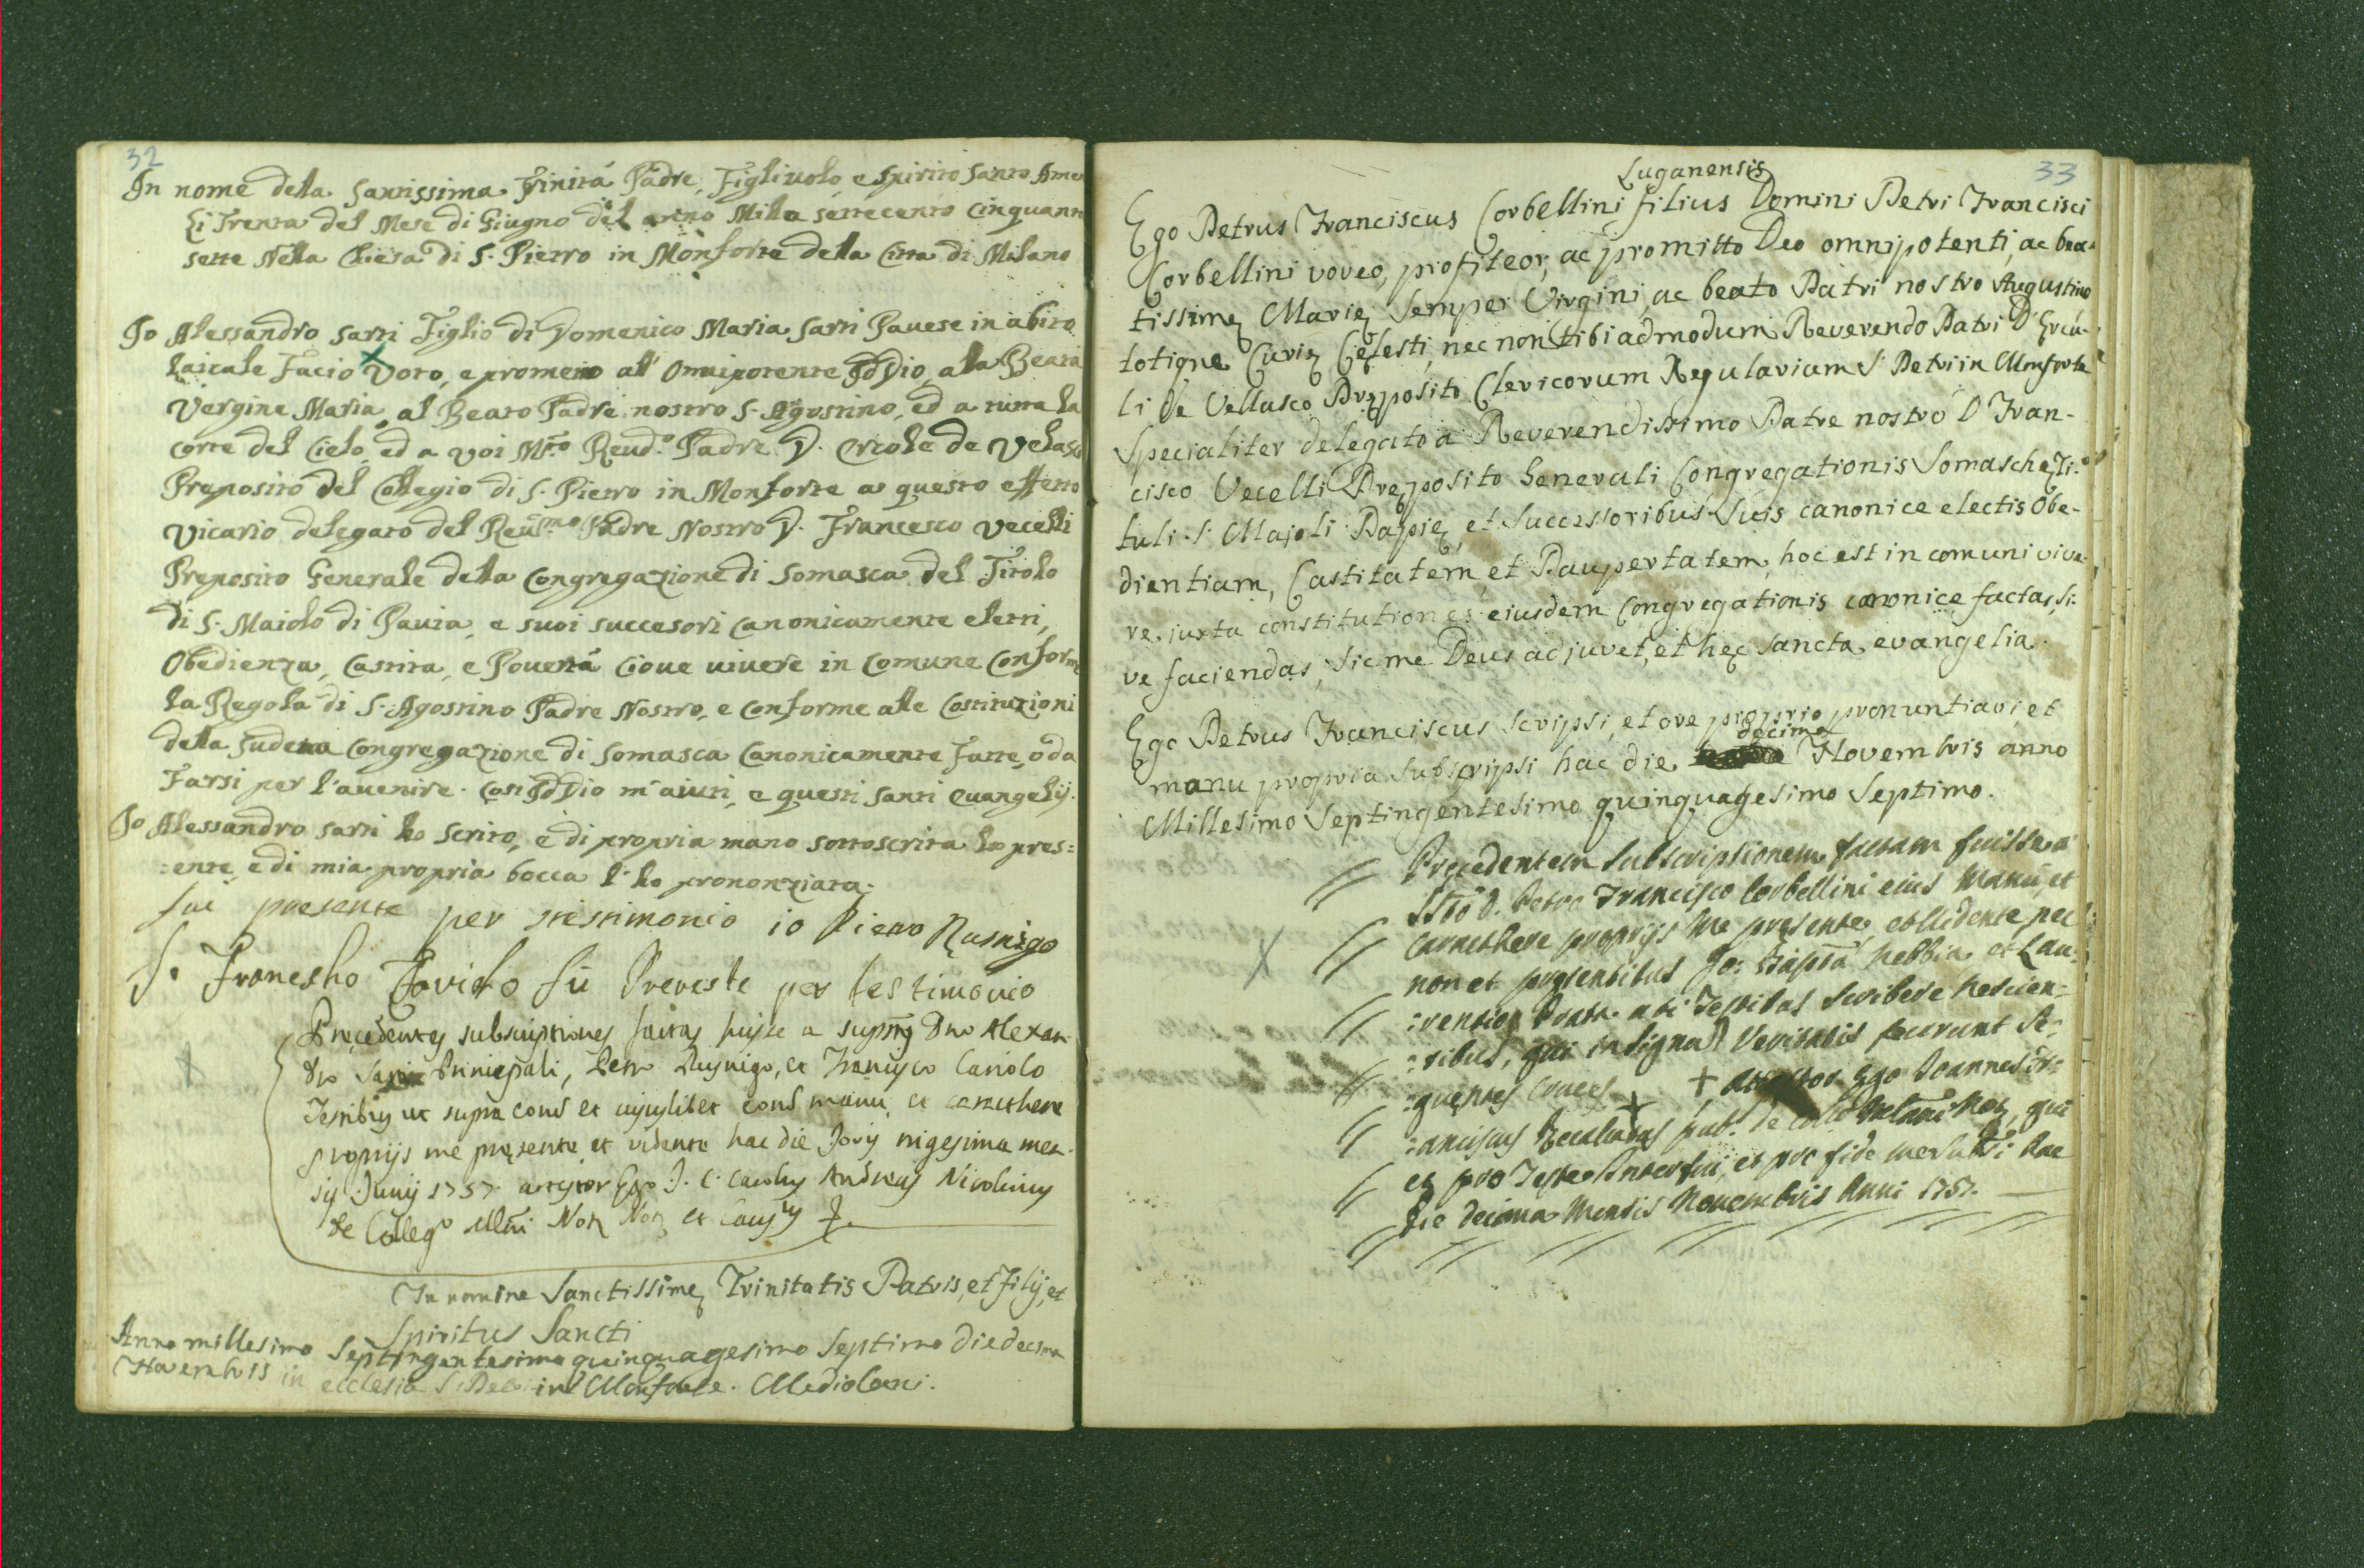 32
In nome della Santissima Trinità Padre, Figliuolo, e Spirito Santo Ame
Li Trenta del Mese di Giugno del anno Mille settecento Cinquant
sette Nella Chiesa di S. Pietro in Monforte della Citta di Milano
Io Alessandro Sarti Figlio di Domenico Maria Sarti Pavese in abito
laicale Facio Voto, e prometto all' Omnipotente IdDio, alla Beata
Vergine Maria, al Beato Padre nostro S. Agostino, ed a tutta la
corte del Cielo, ed a voi M.to Reud.o Padre D. Ercole de Velasco
Preposito del Collegio di S. Pietro in Monforte a questo effetto
Vicario delegato del Reu.mo Padre Nostro D. Francesco Vecelli
Preposito Generale della Congregazione di Somasca del Titolo
di S. Maiolo di Pavia, e suoi succesori Canonicamente eletti,
Obedienza, Castita, e Povertà Cioue uiuere in Comune Conforme
la Regola di S. Agostino Padre Nostro, e Conforme alle Costituzioni
della Sudetta Congregazione di Somasca Canonicamente fatte, o da
Farsi per l'auenire. Così IdDio m'aiuti, e questi Santi Euangelij.
Io Alessandro Sarti ho scrito, e di propria mano sottoscrita la pres=
:ente, e di mia propria bocca l'ho prononziata.
fui presente per testimonio io Pietro Rusnigo
Io Franesho Cariolo fù Preveste per testimonio
Precedentes subscriptiones factas fuisse a suprius Dno Alexan
dro Sarti Principali, Petro Rusnigo, et Francisco Cariolo
Testibus ut supra coms et cujuslibet eoru manu, et carathere
proprijs me presente, et vidente hac die Jovis trigesima men
sis Junij 1757. attestor Ego J. C. Carolus Andreas Nicolinus
de Colleg.o Mlni Not
In nomine Sanctissimę Trinitatis Patris, et Filij, et
Spiritus Sancti
Anno millesimo Septingentesimo quinquagesimo Septimo die decima
Novembris in ecclesia S. Petri in Monforte. Mediolani.
33
Luganensis
Ego Petrus Franciscus Corbellini filius Domini Petri Francisci
Corbellini voveo, profiteor, ac promitto Deo omnipotenti, ac bea-
tissimę Marię Semper Virgini, ac beato Patri nostro Augustino
totique Curię Cęlesti, nec non tibi admodum Reverendo Patri D. Ercu-
li de Vellasco Pręposito Clericorum Regularium S. Petri in Monforte
Specialiter delegato a Reverendissimo Patre nostro D. Fran-
cisco Vecelli Pręposito Generali Congregationis Somaschę Ti-
tuli S. Majoli Papię, et Successoribus Suis canonice electis Obe-
dientiam, Castitatem, et Paupertatem, hoc est in comuni vive-
re, iuxta constitutiones eiusdem Congregationis canonice factas, si-
ve faciendas, Sic me Deus adjuvet, et hęc Sancta evangelia.
Ego Petrus Franciscus scripsi, et ore proprio pronuntiavi, et
decima
manu propria Subscripsi hac die Novembris anno
Millesimo Septingentesimo quinquagesimo Septimo.
Precedentem subscriptionem factam fuisse a
D. Petro Francisco Corbellini eius manu, et
carathere proprijs me pręsente, et vidente, nec
non et pręsentibus Jo: Bapta Nebbia, et Lau:
:rentio testibus scribere nescien:
:tibus, qui in signum Veritatis fecerunt se:
:quentes cruces + + attestor Ego Joannes Fr:
:anciscus pub.
et pro Teste interfui, et pro fide hac
die decima Mensis Novembris Anni 1757.